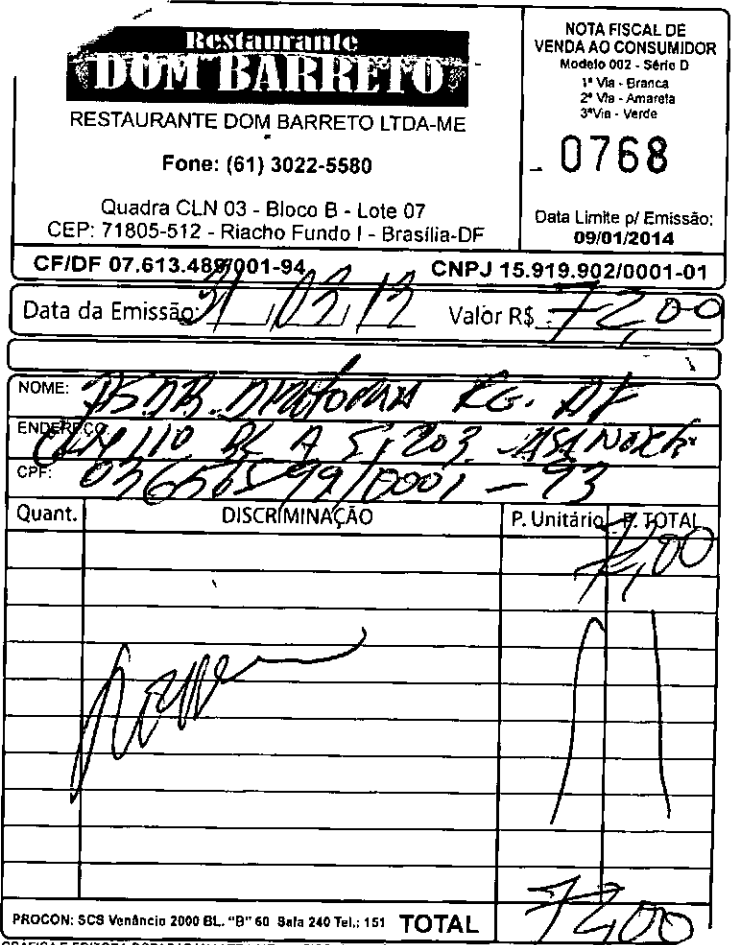 Restaurante
DOM BARRETO
RESTAURANTE DOM BARRETO LTDA-ME
Fone: (61) 3022-5580
Quadra CLN 03 - Bloco B - Lote 07
CEP: 71805-512 - Riacho Fundo I - Brasília-DF
NOTA FISCAL DE
VENDA AO CONSUMIDOR
Modelo 002 - Série D
1ª Via - Branca
2ª Via - Amarela
3ª Via - Verde
0768
Data Limite p/ Emissão:
09/01/2014
CF/DF 07.613.489/001-94 CNPJ 15.919.902/0001-01
Data da Emissão: Valor R$ 72,00
NOME: PSDB
ENDEREÇO: CLN 110 BL A 203 ASA NORTE
CPF: 03656599/0001-93
Quant. DISCRIMINAÇÃO P. Unitário P. TOTAL
72,00
PROCON: SCS Venâncio 2000 BL. "B" 60 Sala 240 Tel.: 151 TOTAL 72,00